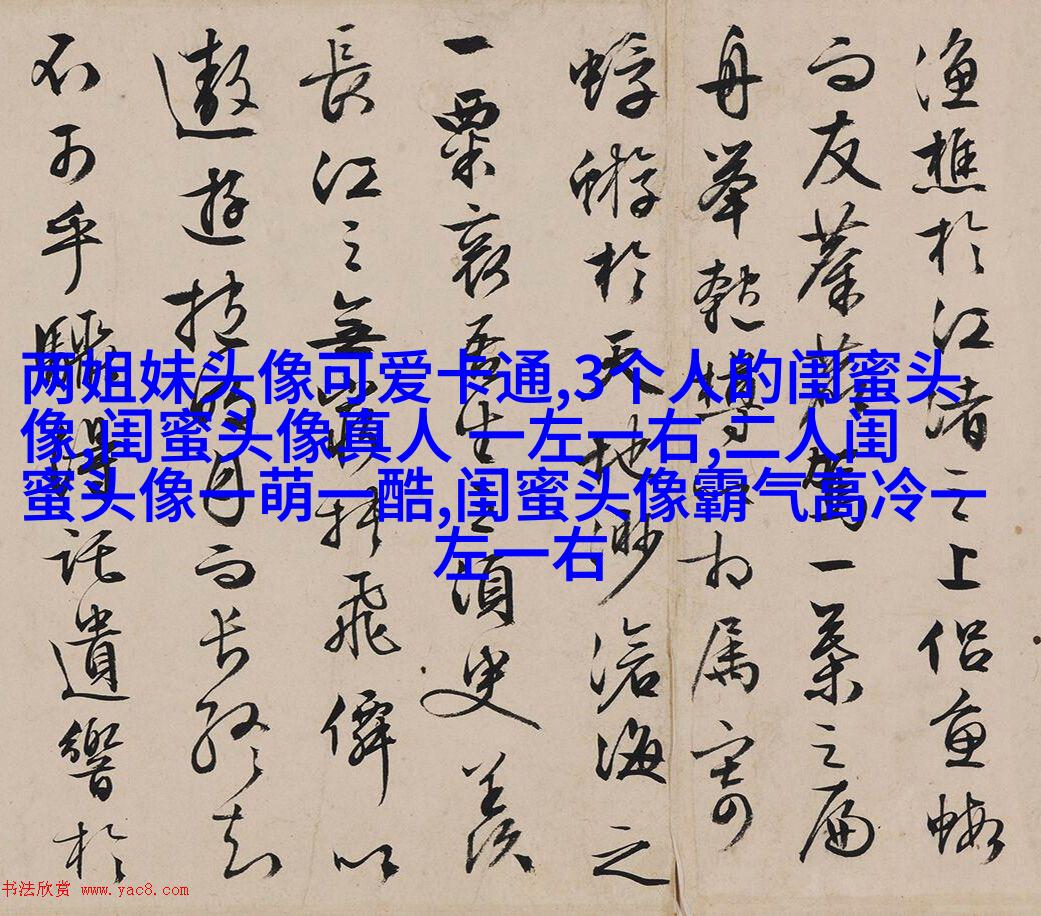 漁樵於江渚之上侶魚蝦
而友麋鹿駕一葉之扁
舟舉匏樽以相属寄
蜉蝣於天地渺滄海之
一粟哀吾生之須臾羨
長江之無窮挾飛僊以
遨遊抱明月而長終知
不可乎驟得託遺響於
两姐妹头像可爱卡通,3个人的闺蜜头
像,闺蜜头像真人 一左一右,二人闺
蜜头像一萌一酷,闺蜜头像霸气高冷一
左一右
书法欣赏 www.yac8.com